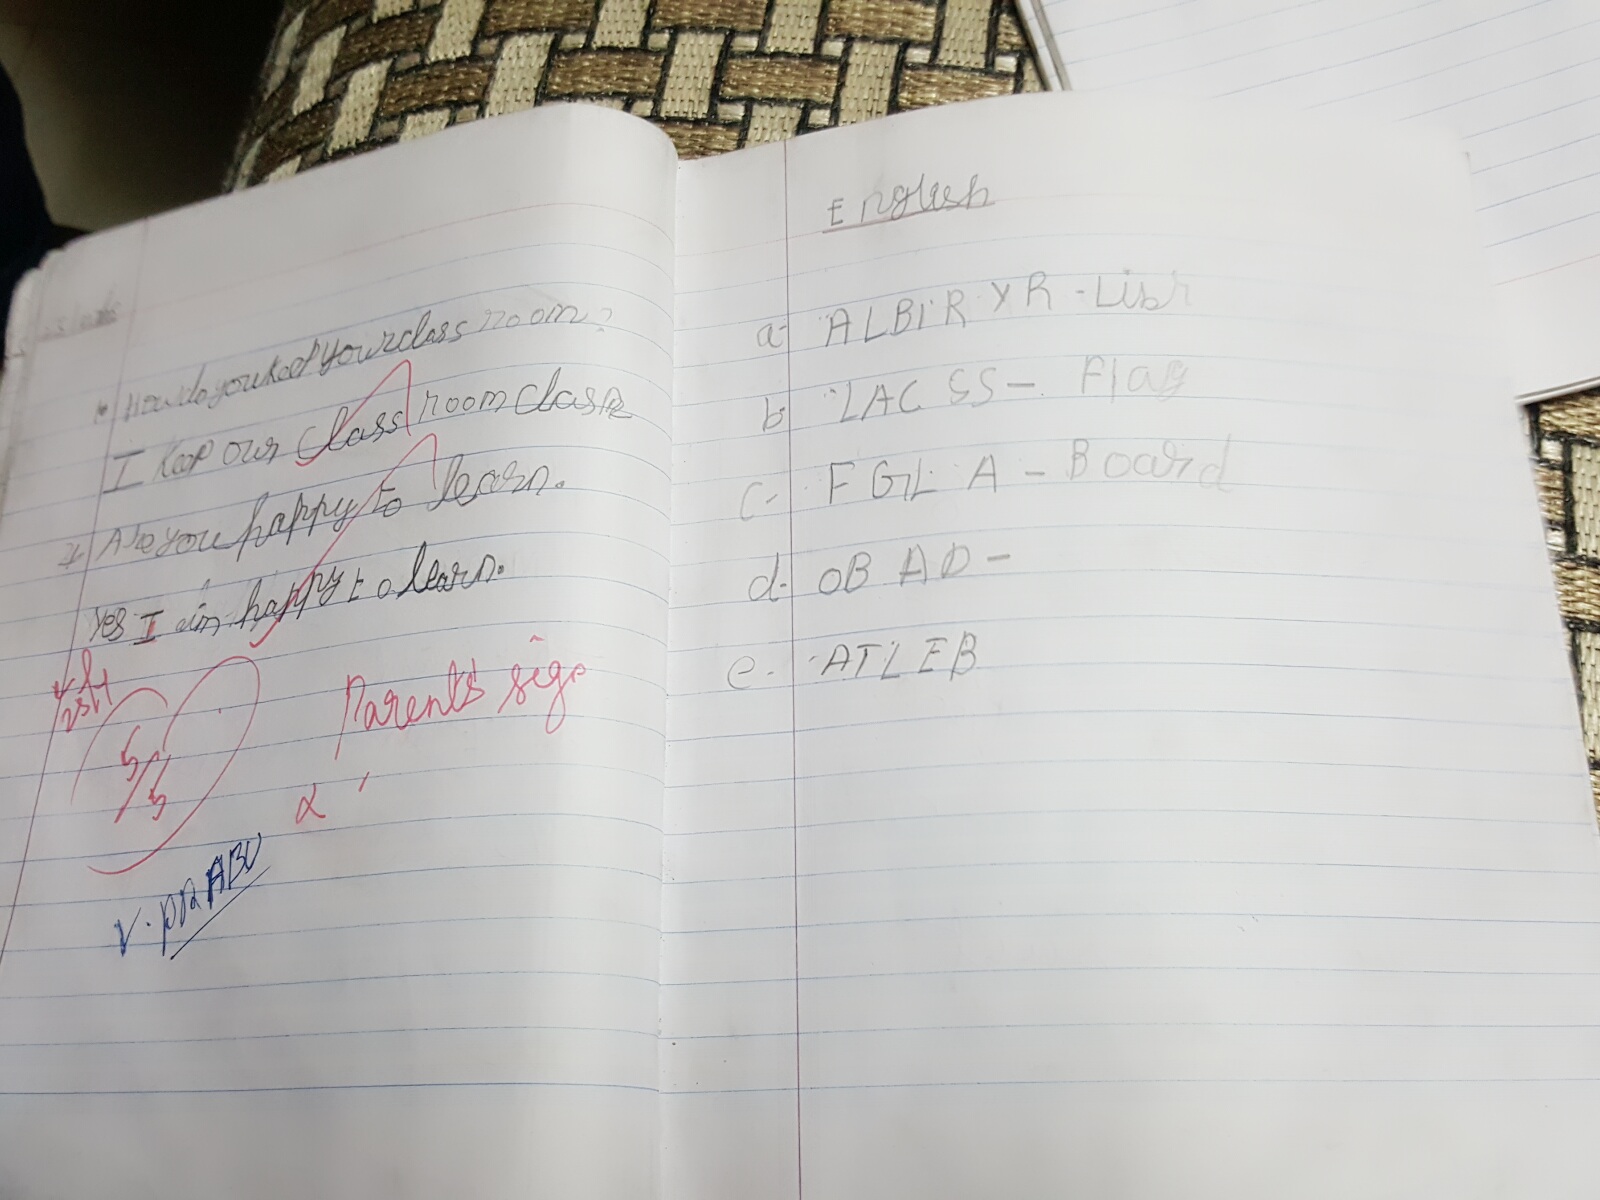 How do you keep your class room?
I keep our class room clean
Are you happy to learn.
Yes I am happy to learn.
5/5
Parent's sign
V. PRABU
English
a- ALBIR YR - Libr
b. LACSS - Flag
c- FGLA - Board
d- OBAD -
e- ATLEB